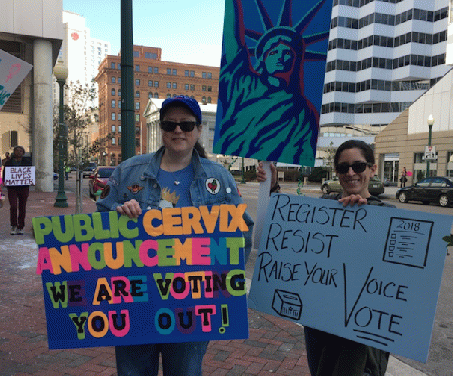 BLACK
LIVES
MATTER
PUBLIC CERVIX
ANNOUNCEMENT
WE ARE VOTING
YOU OUT!
REGISTER
RESIST
RAISE YOUR VOICE
VOTE
2018